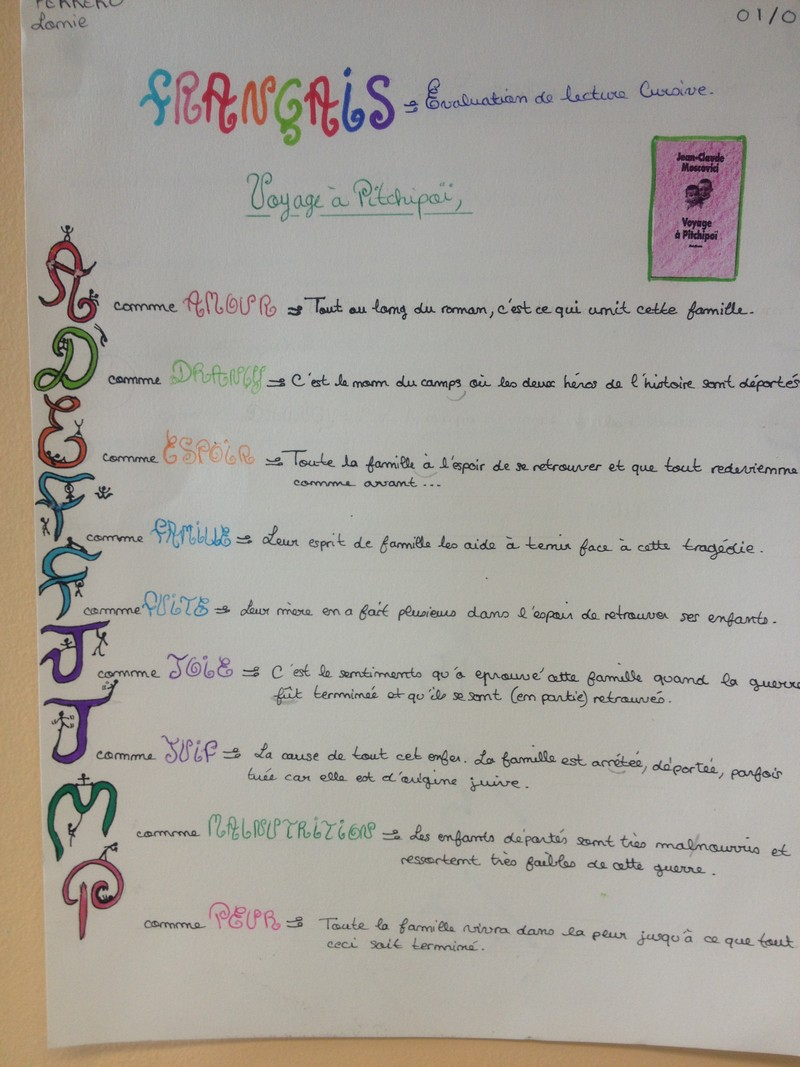 Lomie
01/0
FRANÇAIS ⇒ Évaluation de lecture Cursive.
Voyage à Pitchipoï,
Jean-Claude
Moscovici
Voyage
à Pitchipoï
A comme AMOUR ⇒ Tout au long du roman, c'est ce qui unit cette famille.
D comme DRANCY ⇒ C'est le nom du camps où les deux héros de l'histoire sont déportés
E comme ESPOIR ⇒ Toute la famille à l'espoir de se retrouver et que tout redevienne
comme avant...
F comme FAMILLE ⇒ Leur esprit de famille les aide à tenir face à cette tragédie.
F comme FUITE ⇒ Leur mère en a fait plusieurs dans l'espoir de retrouver ses enfants.
J comme JOIE ⇒ C'est le sentiments qu'a eprouvé cette famille quand la guerre
fût terminée et qu'ils se sont (en partie) retrouvés.
J comme JUIF ⇒ La cause de tout cet enfer. La famille est arrétée, déportée, parfois
tuée car elle est d'origine juive.
M comme MALNUTRITION ⇒ Les enfants déportés sont très malnourris et
ressortent très faibles de cette guerre.
P comme PEUR ⇒ Toute la famille vivra dans la peur jusqu'à ce que tout
ceci soit terminé.